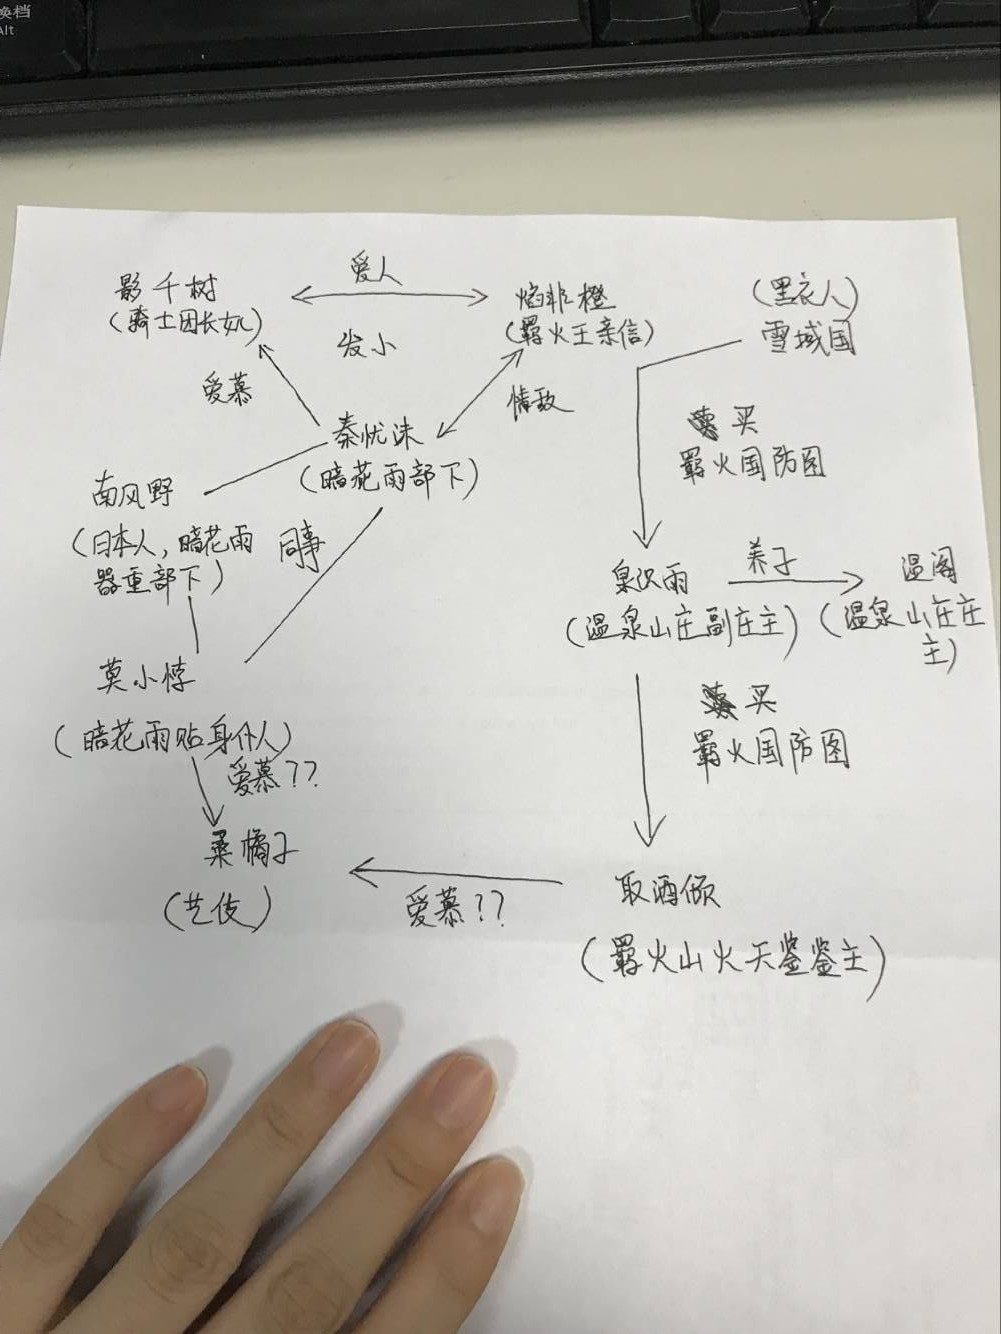 换档
Alt
爱人
影千树
(骑士团长女儿)
焰非橙
(羁火王亲信)
(黑衣人)
雪域国
发小
爱慕
情敌
秦忧沫
(暗花雨部下)
买
羁火国防图
南风野
(日本人,暗花雨
器重部下)
同事
泉沢雨
(温泉山庄副庄主)
养子
温阁
(温泉山庄庄
主)
莫小悖
(暗花雨贴身仆人)
爱慕??
买
羁火国防图
桑橘子
(艺伎)
爱慕??
取酒倾
(羁火山火天鉴鉴主)